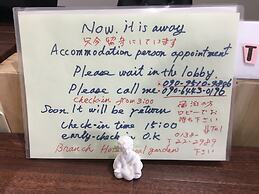 Now, it is away
只今 留守にしています
Accommodation person appointment
Please wait in the lobby.
Please call me
090-6443-0170
check-in from 3:00
Soon it will be return
宿泊の方
ロビーでお
待ち下さい
check-in time 15:00
early-check in O.K
0138-
22-2989
下さい
Branch garden
T